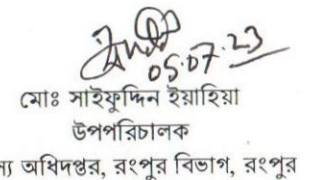 05.07.23
মোঃ সাইফুদ্দিন ইয়াহিয়া
উপপরিচালক
অধিদপ্তর, রংপুর বিভাগ, রংপুর